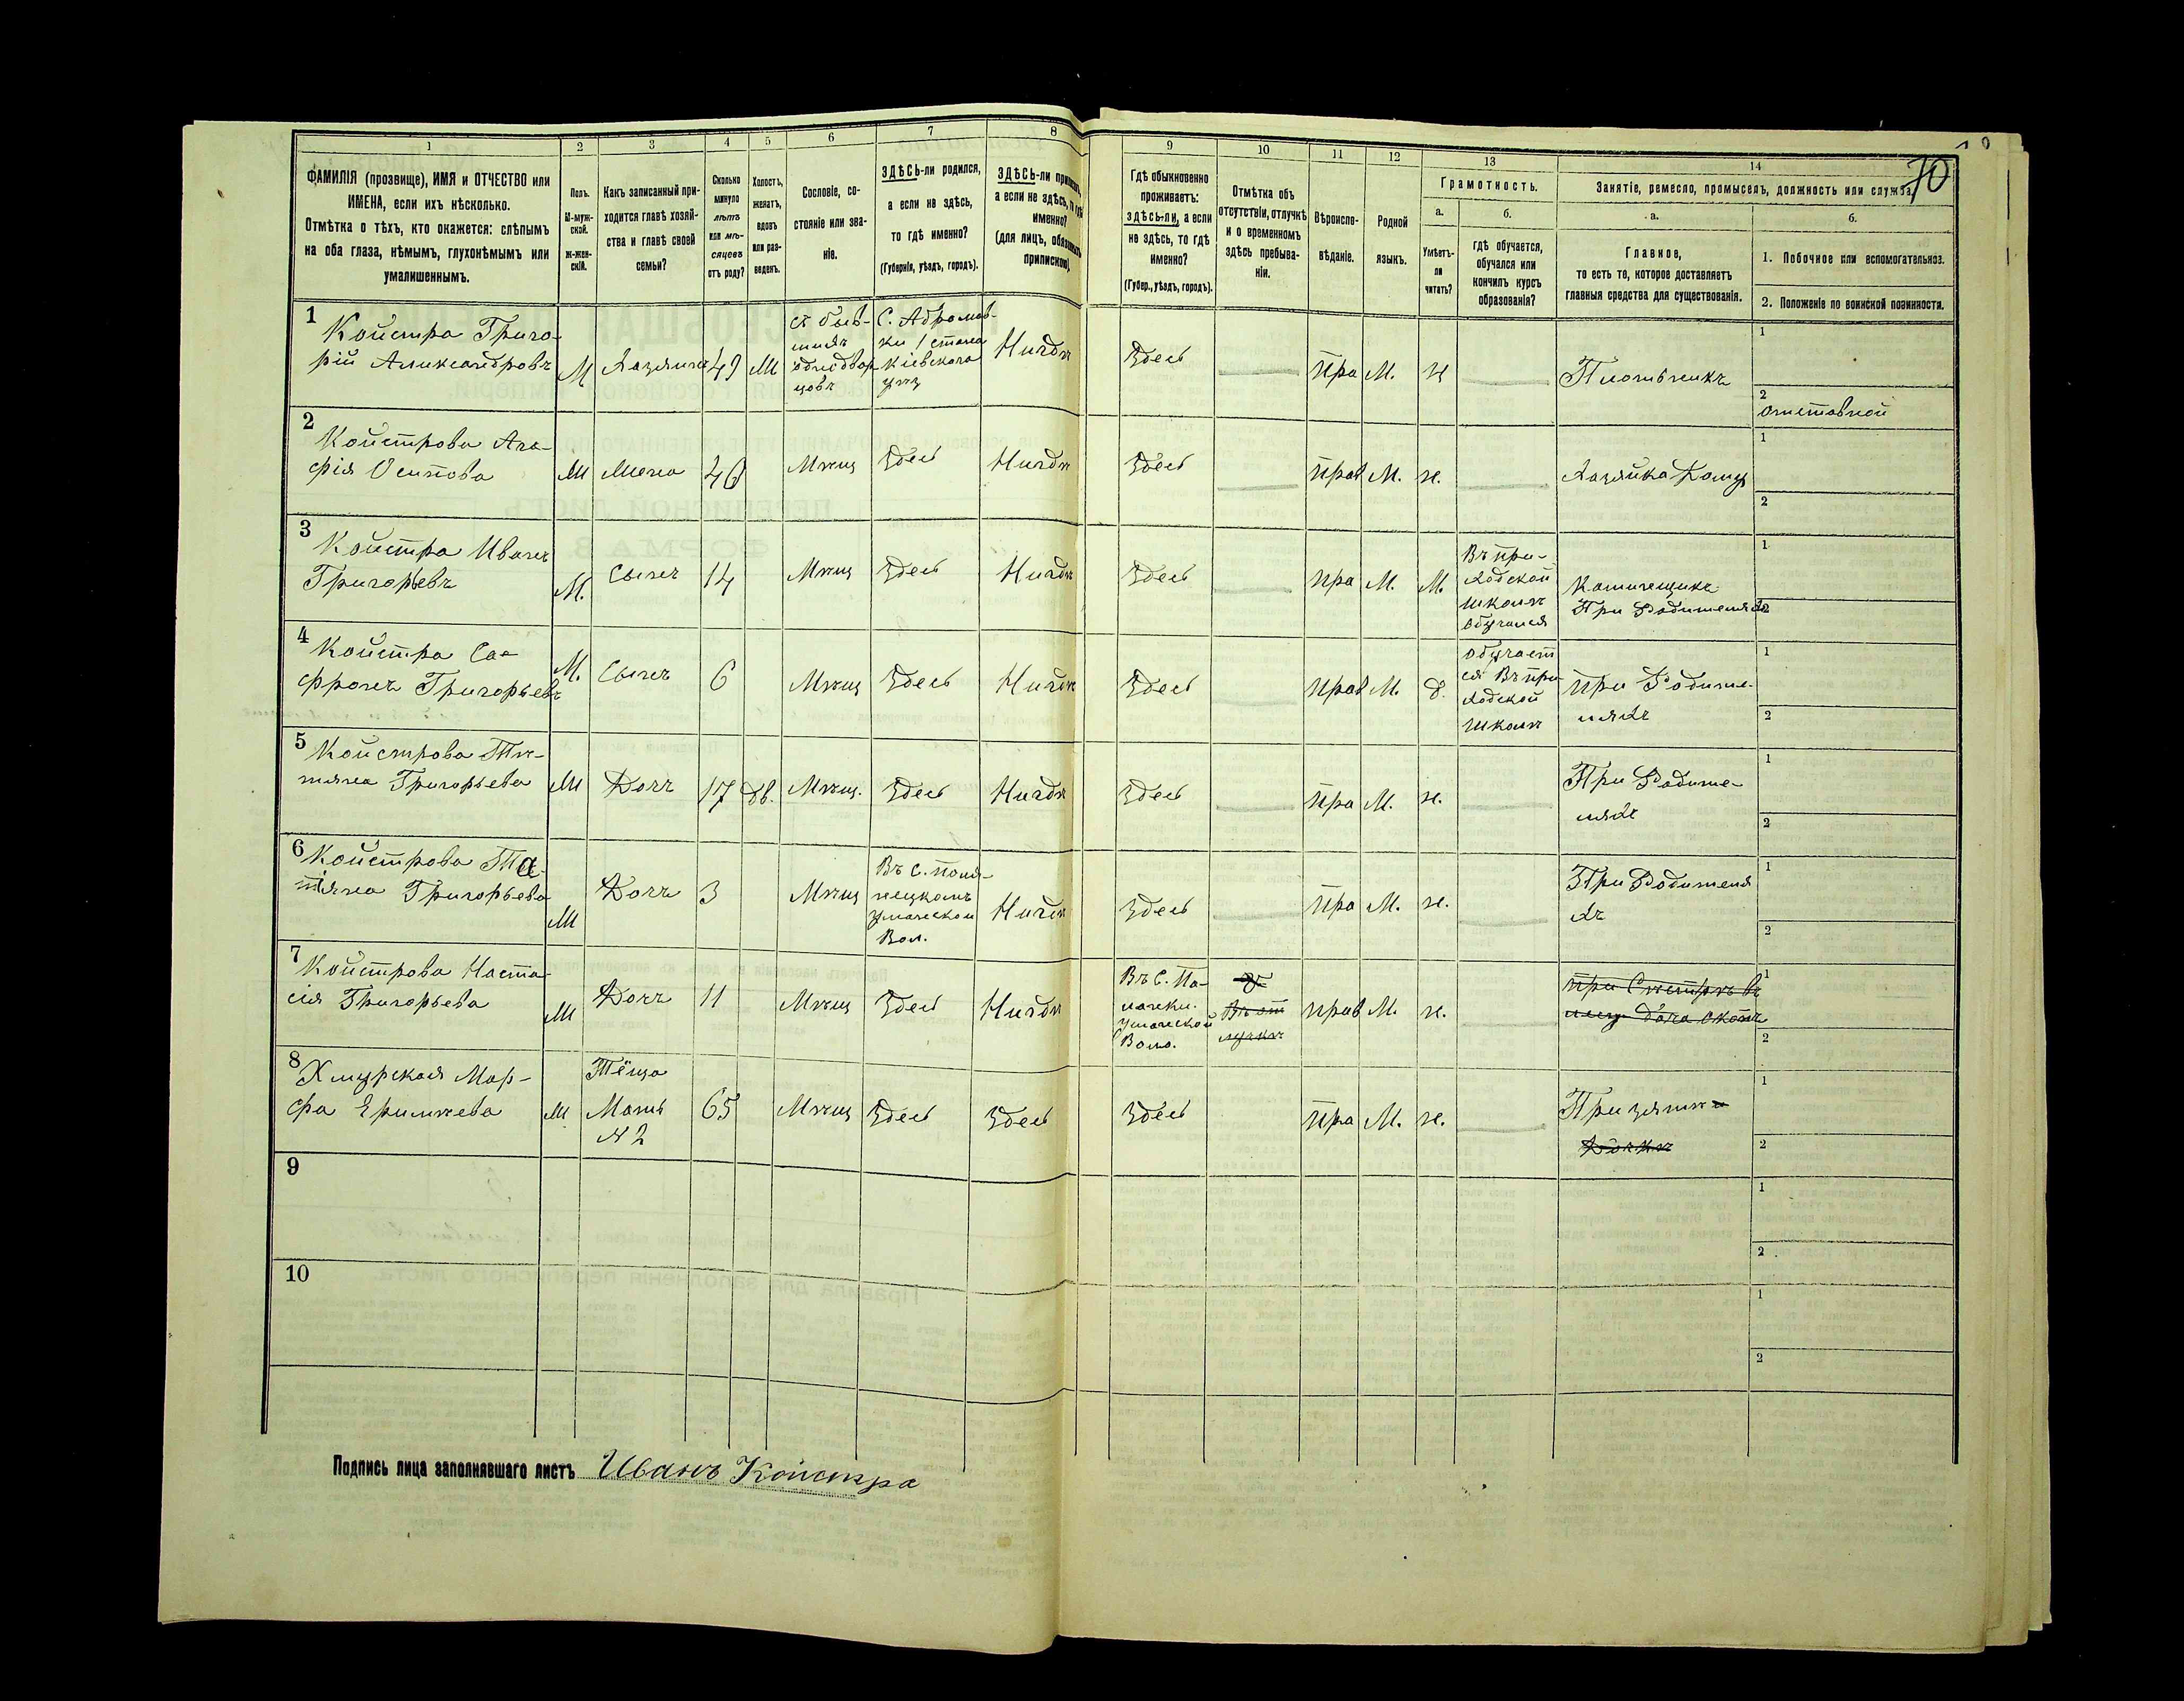 70
1
2
3
4
5
6
7
8
9
10
11
12
13
14
ФАМИЛІЯ (прозвище), ИМЯ и ОТЧЕСТВО или
ИМЕНА, если ихъ нѣсколько.
Отмѣтка о тѣхъ, кто окажется: слѣпымъ
на оба глаза, нѣмымъ, глухонѣмымъ или
умалишеннымъ.
Полъ.
М-муж-
ской.
ж-жен-
скій.
Какъ записанный при-
ходится главѣ хозяй-
ства и главѣ своей
семьи?
Сколько
минуло
лѣтъ
или мѣ-
сяцевъ
отъ роду?
Холостъ,
женатъ,
вдовъ
или раз-
веденъ.
Сословіе, со-
стояніе или зва-
ніе.
ЗДѢСЬ-ли родился,
а если не здѣсь,
то гдѣ именно?
(Губернія, уѣздъ, городъ).
ЗДѢСЬ-ли приписанъ,
а если не здѣсь, то гдѣ
именно?
(для лицъ, обязанныхъ
припискою).
Гдѣ обыкновенно
проживаетъ:
здѣсь-ли, а если
не здѣсь, то гдѣ
именно?
(Губер., уѣздъ, городъ).
Отмѣтка объ
отсутствіи, отлучкѣ
и о временномъ
здѣсь пребыва-
ніи.
Вѣроиспо-
вѣданіе.
Родной
языкъ.
Грамотность.
а.
Умѣетъ-
ли
читать?
б.
гдѣ обучается,
обучался или
кончилъ курсъ
образованія?
Занятіе, ремесло, промыселъ, должность или служба.
а.
Главное,
то есть то, которое доставляетъ
главныя средства для существованія.
б.
1. Побочное или вспомогательное.
2. Положеніе по воинской повинности.
1
Койстра Григо-
рій Александровъ
М
Хазяинъ
49
М
съ быв-
шихъ
однодвор
цовъ
С. Абрамов-
ки 1 стана
Кіевского
Нигдѣ
Здесь
пра
М.
н
Плотьникъ
1
2
отставной
2
Койстрова Ага-
фія Осипова
М
Жена
46
Мѣщ
Здесь
Нигдѣ
Здесь
прав
М.
н.
Хазяйка Дому
1
2
3
Койстра Иванъ
Григорьевъ
М.
Сынъ
14
Мѣщ
Здесь
Нигдѣ
Здесь
пра
М.
М.
Въ при-
ходской
школѣ
обучался
При Родителяхъ
1
2
4
Койстра Са-
фронъ Григорьевъ
М.
Сынъ
6
Мѣщ
Здесь
Нигдѣ
Здесь
прав
М.
д.
обучает
ся Въ при-
ходской
школѣ
при Родите-
ляхъ
1
2
5
Койстрова Тѣ-
тяна Григорьева
М
Дочъ
17
дв.
Мѣщ.
Здесь
Нигдѣ
Здесь
пра
М.
н.
При Родите-
ляхъ
1
2
6
Койстрова Та-
тіяна Григорьева
М
Дочъ
3
Мѣщ
Въ С.
Вол.
Нигдѣ
Здесь
пра
М.
н.
При Родителя
хъ
1
2
7
Койстрова Наста-
сія Григорьева
М
Дочъ
11
Мѣщ
Здесь
Нигдѣ
Въ С. Па-
Воло.
Въ от
лучкѣ
прав
М.
н.
1
2
8
Хмурская Мар-
фа
М
Тёща
Мать
№ 2
65
Мѣщ
Здесь
Здесь
Здесь
пра
М.
н.
При зятѣ и
Дочкѣ
1
2
9
1
2
10
1
2
Подпись лица заполнявшаго листъ Иванъ Койстра